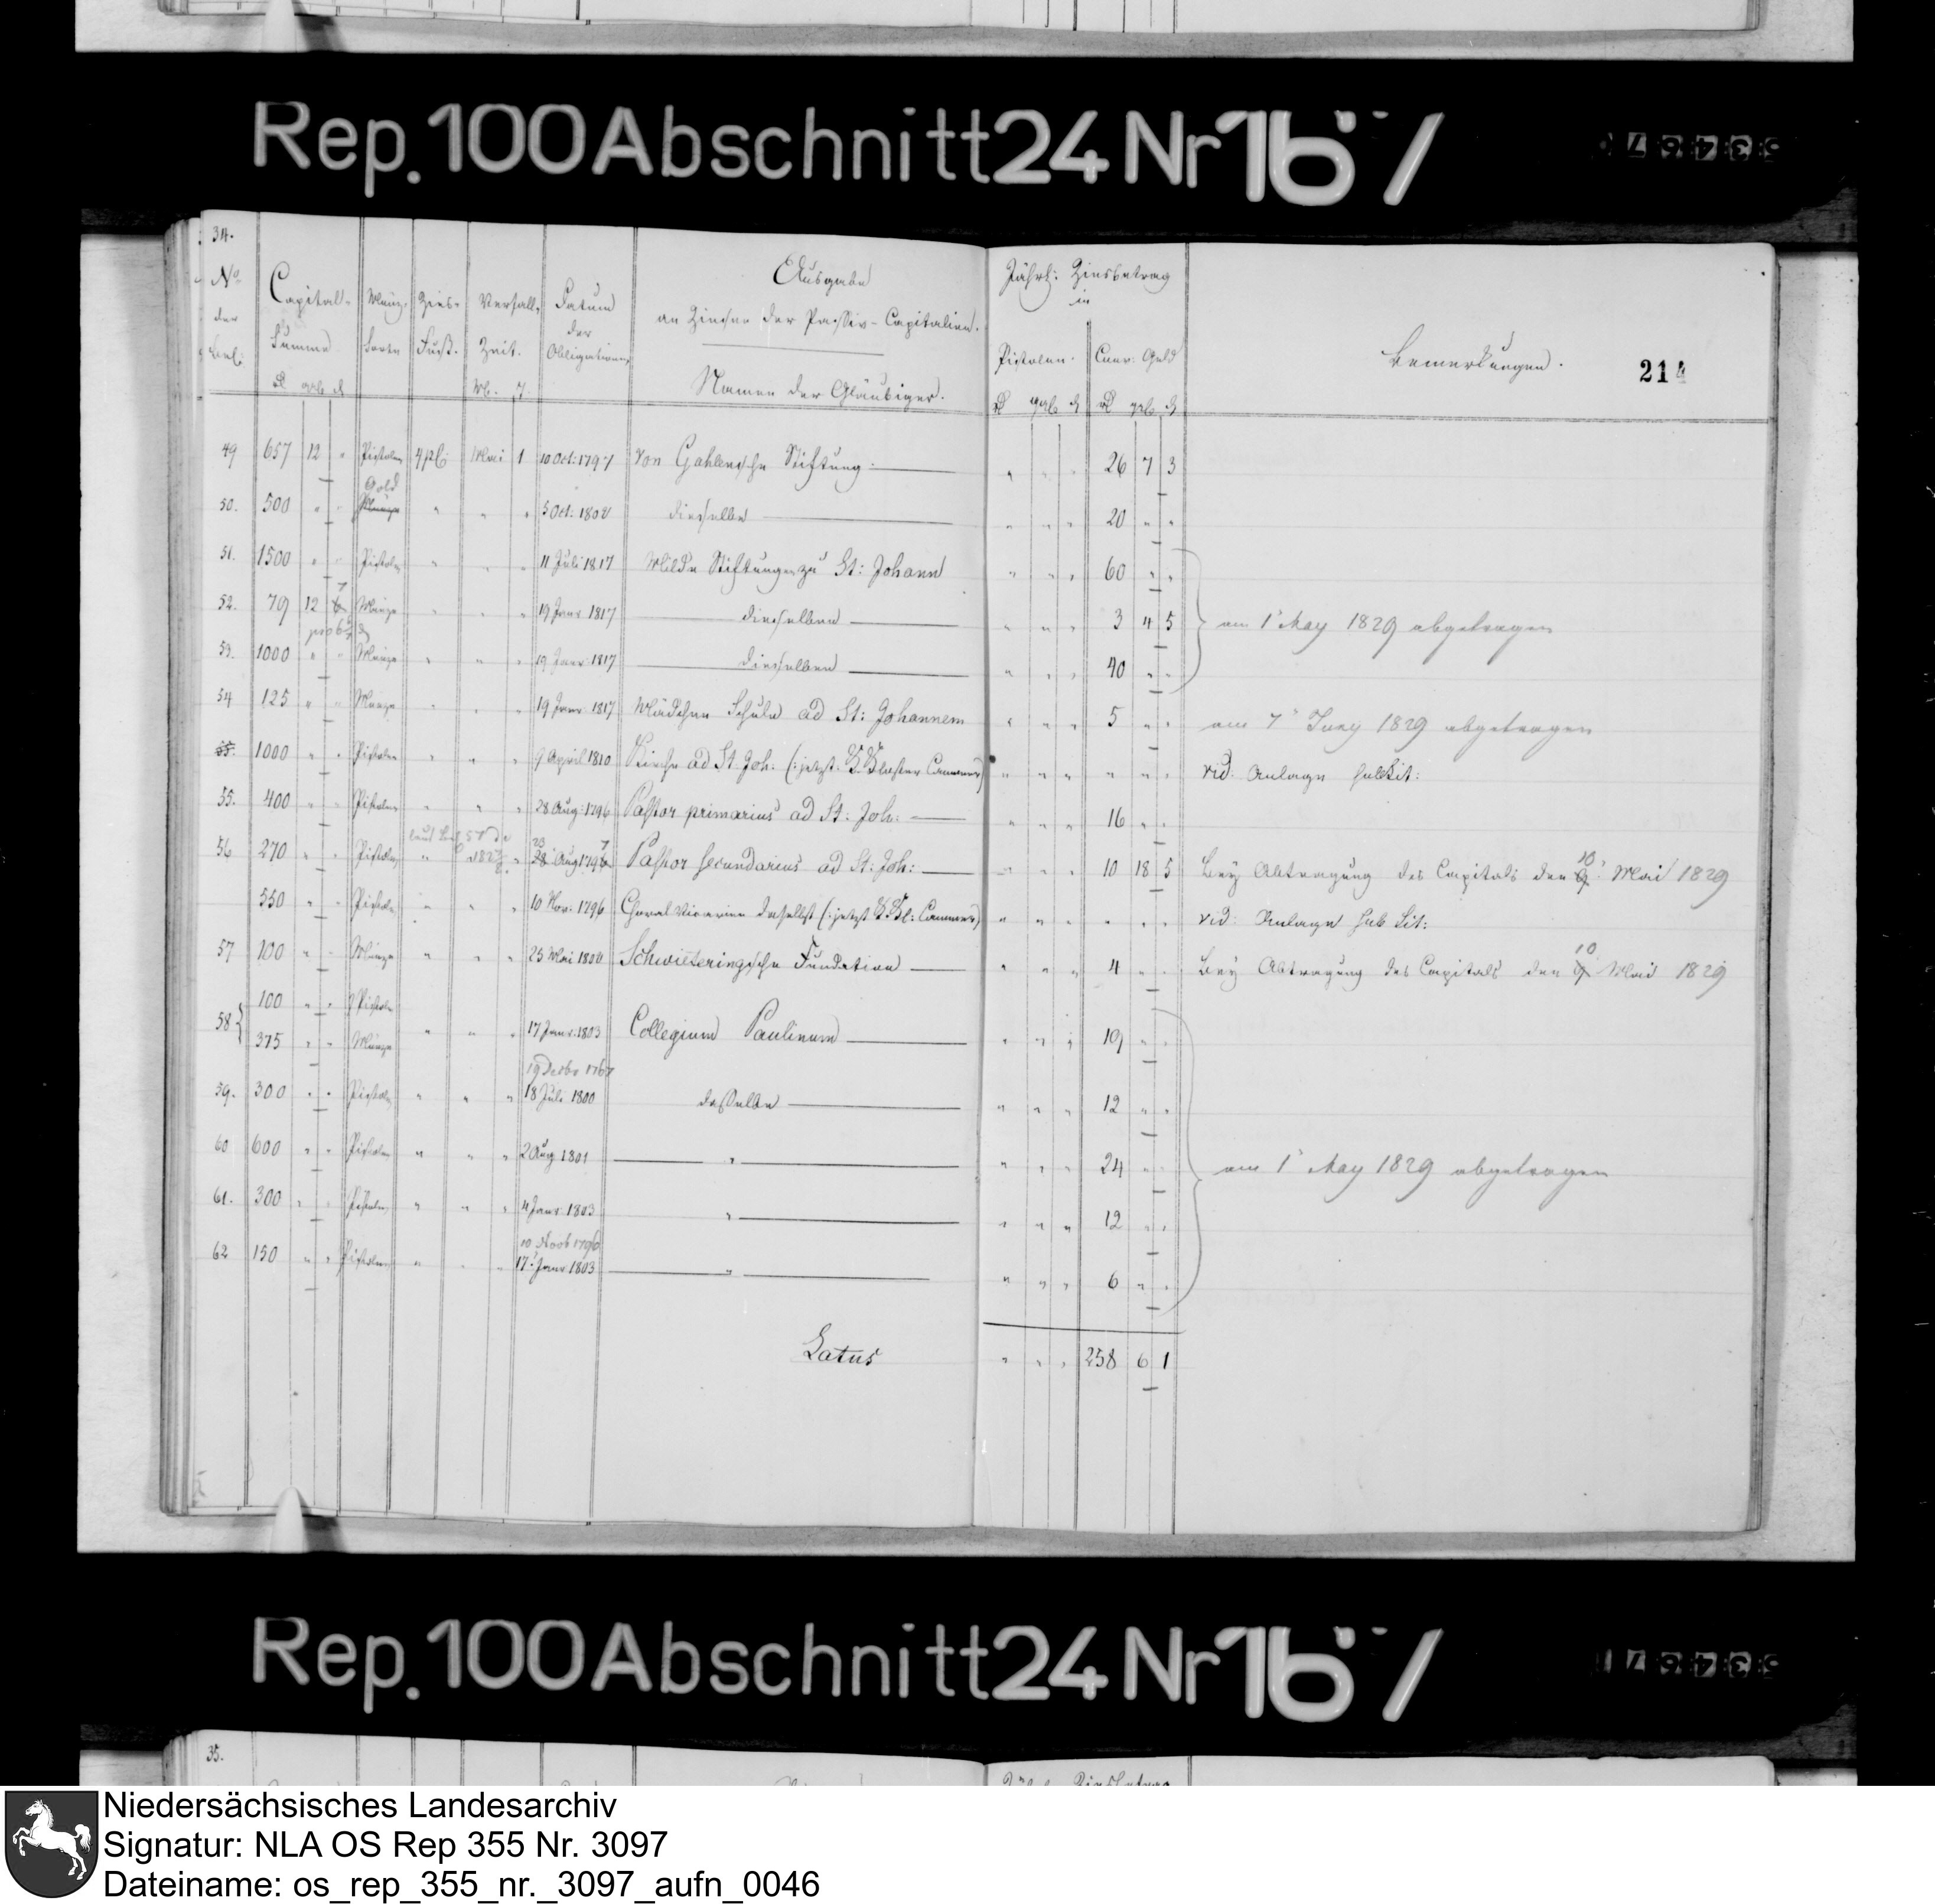 Rep. 100 Abschnitt 24 Nr 167
34.
No der Bel:
Capital-Summe
Münz-Sorte
Zins-Fuß.
Verfall-Zeit.
Datum der Obligationen
Ausgabe
an Zinsen der Passiv-Capitalien.
Namen der Gläubiger.
Jährl: Zinsbetrag
in
Pistolen. Conv: Geld
Bemerkungen.
214
49 657 12 " Pistolen 4 pC: Mai 1 10 Oct: 1797 Von Gahlensche Stiftung " " " 26 7 3
50. 500 " " Gold " " " 5 Oct: 1802 dieselbe " " " 20 " "
51. 1500 " " Pistolen " " " 11 Juli 1817 Milde Stiftungen zu St: Johann " " " 60 " "
52. 79 12 7 Münze " " " 19 Janr 1817 dieselben " " " 3 4 5 am 1t May 1829 abgetragen
53. 1000 " " Münze " " " 19 Janr 1817 dieselben " " " 40 " "
54 125 " " Münze " " " 19 Janr 1817 Mädchen Schule ad St: Johannem " " " 5 " " am 7t Juny 1829 abgetragen
55. 1000 " " Pistolen " " " 9 April 1810 Kirche ad St. Joh: (: jetzt: K. Kloster Cammer) " " " " " " vid: Anlage sub Lit:
55. 400 " " Pistolen " " " 28 Aug: 1796 Pastor primarius ad St: Joh: " " " 16 " "
56 270 " " Pistolen " " " 23 Aug 1797 Pastor secundarius ad St: Joh: " " " 10 18 5 Bey Abtragung des Capitals den 10 Mai 1829
550 " " Pistolen " " " 10 Nov: 1796 Choral Vicarien daselbst (: jetzt K. Kl: Cammer) " " " " " " vid: Anlage sub Lit:
57 100 " " Münze " " " 25 Mai 1802 Schwieteringsche Fundation " " " 4 " " Bey Abtragung des Capitals den 10 Mai 1829
100 " " Pistolen
58 375 " " Münze " " " 17 Janr: 1803 Collegium Paulinum " " " 19 " "
19 Decbr 1767
59. 300 " " Pistolen " " " 18 Juli 1800 dasselbe " " " 12 " "
60 600 " " Pistolen " " " 2 Aug 1801 " " " " 24 " " am 1t May 1829 abgetragen
61. 300 " " Pistolen " " " 4 Janr 1803 " " " " 12 " "
10 Novb 1796
62 150 " " Pistolen " " " 17 Janr 1803 " " " " 6 " "
Latus " " " 258 6 1
Rep. 100 Abschnitt 24 Nr 167
35.
Niedersächsisches Landesarchiv
Signatur: NLA OS Rep 355 Nr. 3097
Dateiname: os_rep_355_nr._3097_aufn_0046